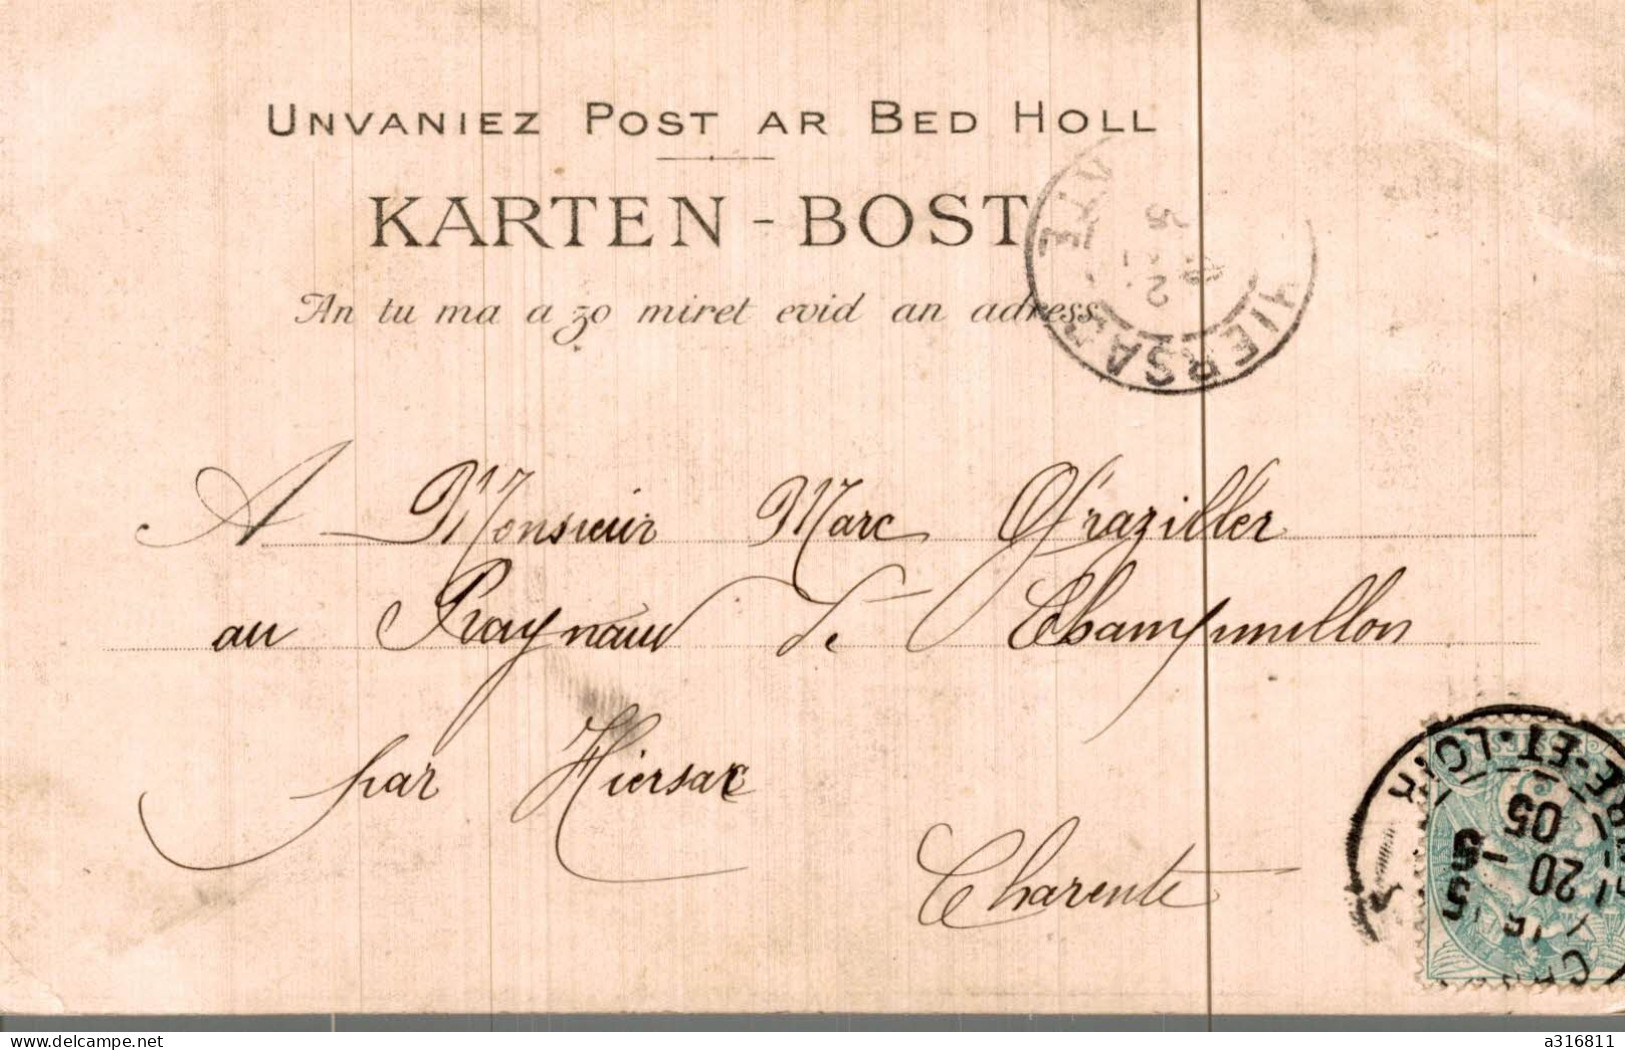 UNVANIEZ POST AR BED HOLL
KARTEN-BOST
An tu ma a zo miret evid an adress
HIERSAC
A Monsieur Marc Graziller
au Raynaud de Champmillon
par Hiersac
Charente
EURE-ET-LOIR
20
05
delcampe.net
a316811